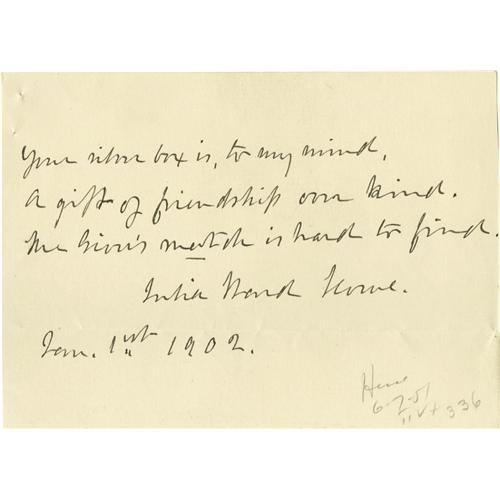 Your silver box is, to my mind,
A gift of friendship over kind.
The Giver's match is hard to find.
Julia Ward Howe.
Jan. 1st 1902.
Howe
6-7-51